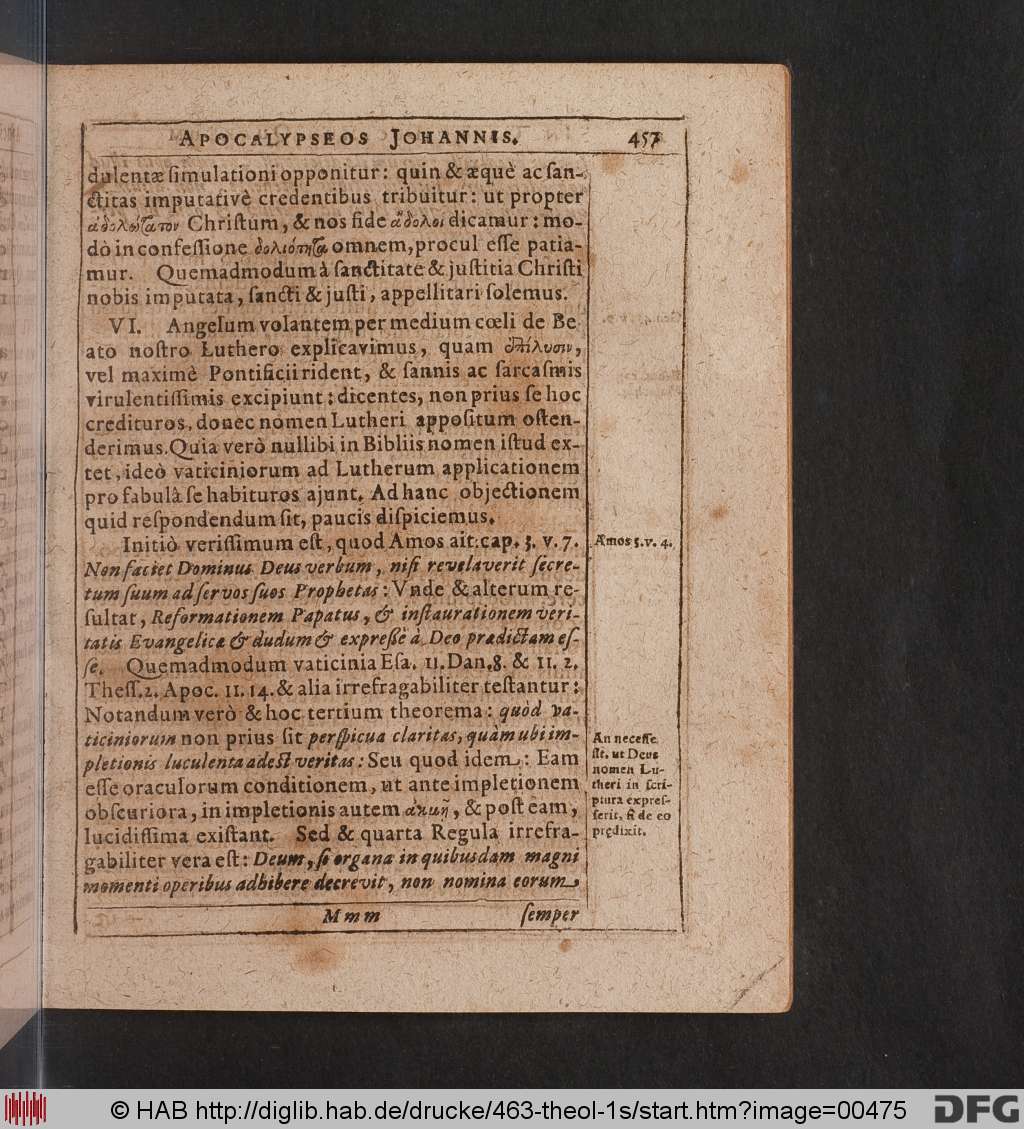 APOCALYPSEOS JOHANNIS. 457
dulentæ ſimulationi opponitur: quin & æquè ac ſan-
ctitas imputativè credentibus tribuitur: ut propter
Chriſtum, & nos fide ἄδολοι dicamur: mo-
dò in confeſſione δολιότηϛα omnem, procul eſſe patia-
mur. Quemadmodum à ſanctitate & juſtitia Chriſti
nobis imputata, ſancti & juſti, appellitari ſolemus.
VI. Angelum volantem per medium cœli de Be
ato noſtro Luthero explicavimus, quam ἐπίλυσιν,
vel maximè Pontificii rident, & ſannis ac ſarcaſmis
virulentiſſimis excipiunt: dicentes, non prius ſe hoc
credituros, donec nomen Lutheri appoſitum oſten-
derimus. Quia verò nullibi in Bibliis nomen iſtud ex-
tet, ideò vaticiniorum ad Lutherum applicationem
pro fabulâ ſe habituros ajunt. Ad hanc objectionem
quid reſpondendum ſit, paucis diſpiciemus.
Initiò veriſſimum eſt, quod Amos ait: cap. 3. v. 7.
Non faciet Dominus Deus verbum, niſi revelaverit ſecre-
tum ſuum ad ſervos ſuos Prophetas: Vnde & alterum re-
ſultat, Reformationem Papatus, & inſtaurationem veri-
tatis Evangelicæ & dudum & expreſſè à Deo prædictam eſ-
ſe. Quemadmodum vaticinia Eſa. 11. Dan. 8. & 11. 2.
Theſſ. 2. Apoc. 11. 14. & alia irrefragabiliter teſtantur:
Notandum verò & hoc tertium theorema: quòd va-
ticiniorum non prius ſit perſpicua claritas, quàm ubi im-
pletionis luculenta adest veritas: Seu quod idem: Eam
eſſe oraculorum conditionem, ut ante impletionem
obſcuriora, in impletionis autem ἀκμῇ, & poſt eam,
lucidiſſima exiſtant. Sed & quarta Regula irrefra-
gabiliter vera eſt: Deum, ſi organa in quibusdam magni
momenti operibus adhibere decrevit, non nomina eorum,
Mmm ſemper
Amos 3. v. 4.
An neceſſe
ſit, ut Deus
nomen Lu-
theri in ſcri-
ptura expreſ-
ſerit, ſi de eo
prædixit.
© HAB http://diglib.hab.de/drucke/463-theol-1s/start.htm?image=00475
DFG